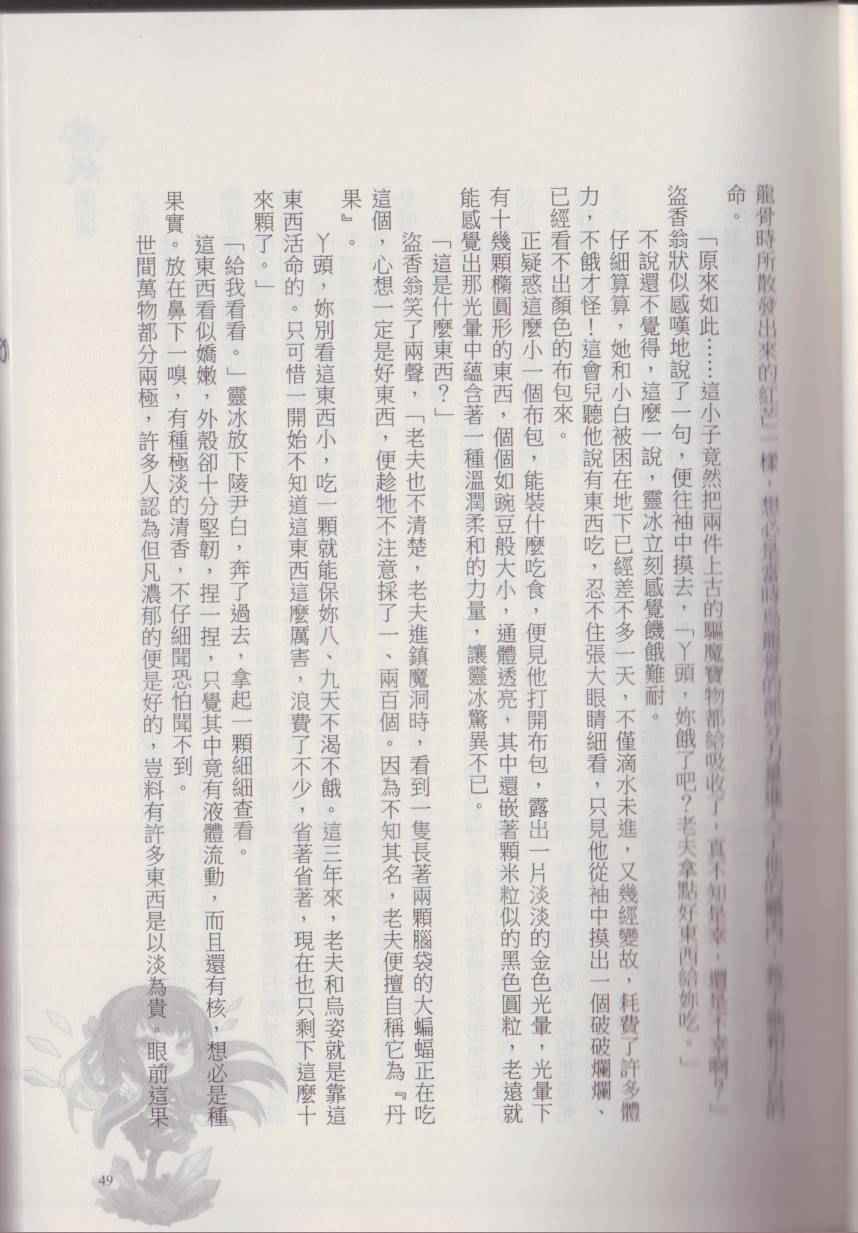 龍骨時所散發出來的紅芒一樣，想必是當時
命。
「原來如此……這小子竟然把兩件上古的驅魔寶物都給吸收了，真不知是幸，還是不幸啊？」
盜香翁狀似感嘆地說了一句，便往袖中摸去，「丫頭，妳餓了吧？老夫拿點好東西給妳吃。」
不說還不覺得，這麼一說，靈冰立刻感覺饑餓難耐。
仔細算算，她和小白被困在地下已經差不多一天，不僅滴水未進，又幾經變故，耗費了許多體
力，不餓才怪！這會兒聽他說有東西吃，忍不住張大眼睛細看，只見他從袖中摸出一個破破爛爛、
已經看不出顏色的布包來。
正疑惑這麼小一個布包，能裝什麼吃食，便見他打開布包，露出一片淡淡的金色光暈，光暈下
有十幾顆橢圓形的東西，個個如豌豆般大小，通體透亮，其中還嵌著顆米粒似的黑色圓粒，老遠就
能感覺出那光暈中蘊含著一種溫潤柔和的力量，讓靈冰驚異不已。
「這是什麼東西？」
盜香翁笑了兩聲，「老夫也不清楚，老夫進鎮魔洞時，看到一隻長著兩顆腦袋的大蝙蝠正在吃
這個，心想一定是好東西，便趁牠不注意採了一、兩百個。因為不知其名，老夫便擅自稱它為『丹
果』。
丫頭，妳別看這東西小，吃一顆就能保妳八、九天不渴不餓。這三年來，老夫和烏姿就是靠這
東西活命的。只可惜一開始不知道這東西這麼厲害，浪費了不少，省著省著，現在也只剩下這麼十
來顆了。」
「給我看看。」靈冰放下陵尹白，奔了過去，拿起一顆細細查看。
這東西看似嬌嫩，外殼卻十分堅韌，捏一捏，只覺其中竟有液體流動，而且還有核，想必是種
果實。放在鼻下一嗅，有種極淡的清香，不仔細聞恐怕聞不到。
世間萬物都分兩極，許多人認為但凡濃郁的便是好的，豈料有許多東西是以淡為貴。眼前這果
49